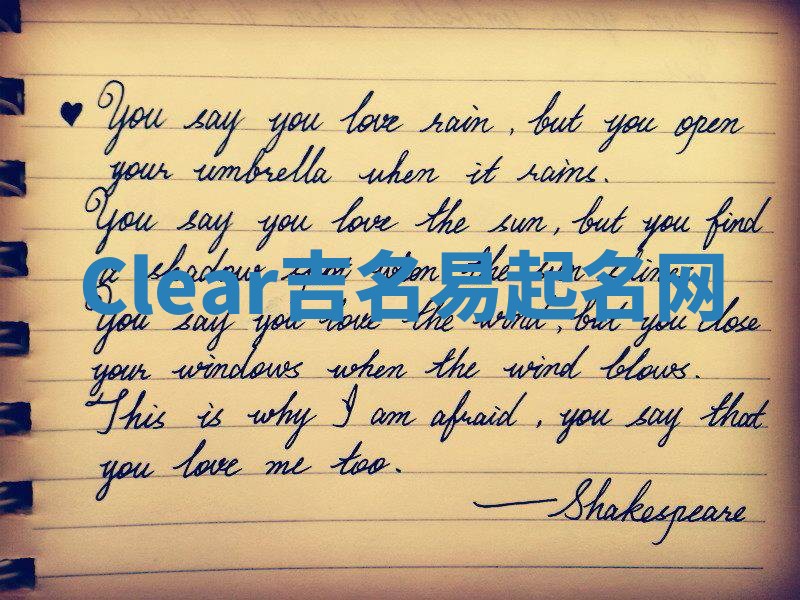 ♥ You say you love rain, but you open
your umbrella when it rains.
You say you love the sun, but you find
a shadow spot when the sun shines.
Clear吉名易起名网
You say you love the wind, but you close
your windows when the wind blows.
This is why I am afraid, you say that
you love me too.
—Shakespeare